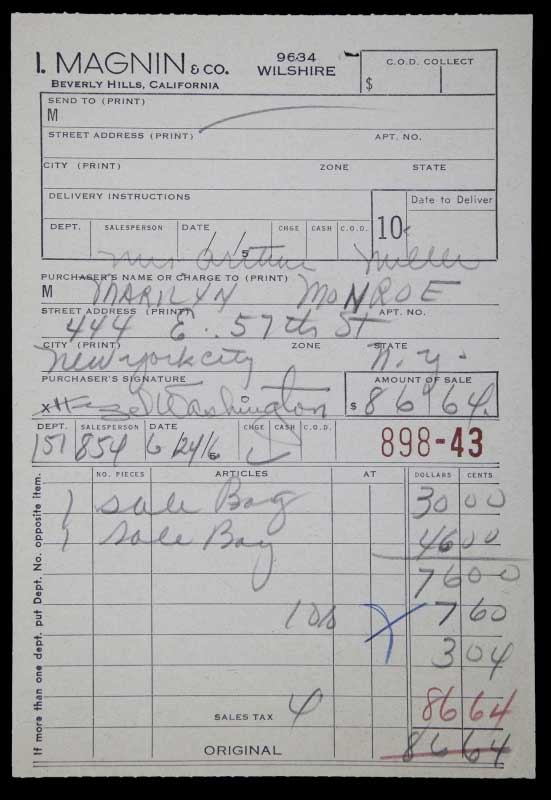 I. MAGNIN & CO. 9634 WILSHIRE C.O.D. COLLECT
BEVERLY HILLS, CALIFORNIA $
SEND TO (PRINT)
M
STREET ADDRESS (PRINT) APT. NO.
CITY (PRINT) ZONE STATE
DELIVERY INSTRUCTIONS Date to Deliver
DEPT. SALESPERSON DATE CHGE CASH C.O.D. 10
Mrs Arthur Miller
PURCHASER'S NAME OR CHARGE TO (PRINT)
M MARILYN MONROE
STREET ADDRESS (PRINT) APT. NO.
444 E. 57th St
CITY (PRINT) ZONE STATE
New york city N.Y.
PURCHASER'S SIGNATURE AMOUNT OF SALE
x Hazel Washington $ 86 64
DEPT. SALESPERSON DATE CHGE CASH C.O.D. 898-43
151 854 6/24/6
NO. PIECES ARTICLES AT DOLLARS CENTS
1 Sale Bag 30 00
1 Sale Bag 46 00
76 00
10% 7 60
3 04
SALES TAX 4 86 64
ORIGINAL 86 64
If more than one dept. put Dept. No. opposite item.